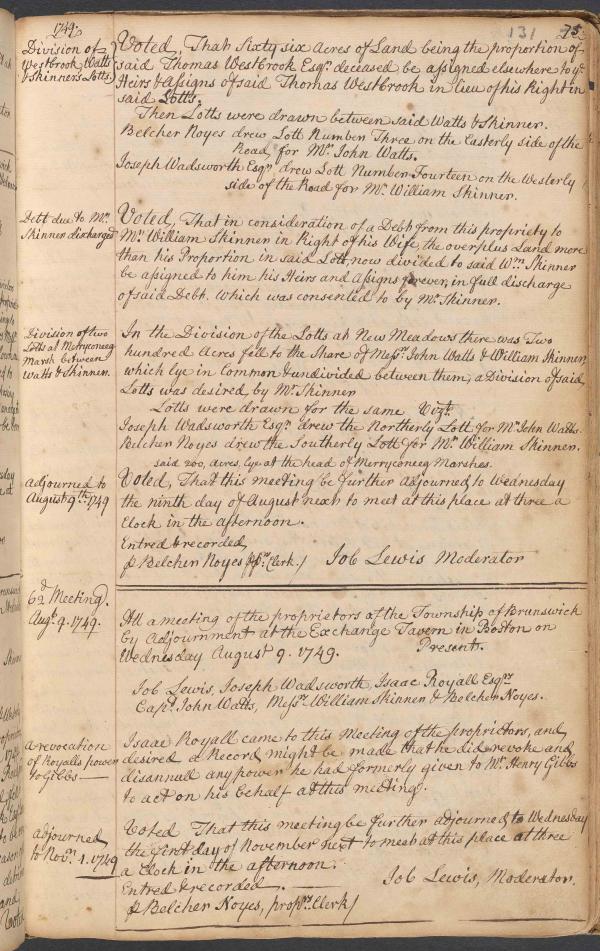 1749.
131
75
Division of
Westbrook Watts
& Skinners Lotts
Voted, That Sixty six Acres of Land being the proportion of
said Thomas Westbrook Esqr. deceased be assigned elsewhere to ye.
Heirs & Assigns of said Thomas Westbrook in lieu of his Right in
said Lotts.
Then Lotts were drawn between said Watts & Skinner.
Belcher Noyes drew Lott Number Three on the Easterly side of the
Road, for Mr. John Watts.
Joseph Wadsworth Esqr. drew Lott Number Fourteen on the Westerly
side of the Road for Mr. William Skinner.
Debt due to Mr.
Skinner discharged
Voted, That in consideration of a Debt from this propriety to
Mr. William Skinner in Right of his Wife, the overplus Land more
than his Proportion in said Lott, now divided to said Wm. Skinner
be assigned to him his Heirs and Assigns forever, in full discharge
of said Debt. Which was consented to by Mr. Skinner.
Division of two
Lotts at Merryconeeg
Marsh between
Watts & Skinner.
In the Division of the Lotts at New Meadows there was Two
hundred Acres fell to the Share of Messrs. John Watts & William Skinner,
which lye in Common & undivided between them, a Division of said
Lotts was desired by Mr. Skinner
Lotts were drawn for the same Vizt.
Joseph Wadsworth Esqr. drew the Northerly Lott for Mr. John Watts.
Belcher Noyes drew the Southerly Lott for Mr. William Skinner.
said 200, acres, lye at the head of Merryconeeg Marshes.
adjourned to
August 9th. 1749
Voted, That this meeting be further adjourned to Wednesday
the ninth day of August next to meet at this place at three a
Clock in the afternoon.
Entred & recorded,
p Belcher Noyes ppr. Clerk./
Job Lewis Moderator
62d Meeting.
Augt. 9. 1749.
At a meeting of the proprietors of the Township of Brunswick
by Adjournment at the Exchange Tavern in Boston on
Wednesday August 9. 1749.
Present.
Job Lewis, Joseph Wadsworth, Isaac Royall Esqrs.
Capt. John Watts, Messrs. William Skinner & Belcher Noyes.
a revocation
of Royalls power
to Gibbs
Isaac Royall came to this Meeting of the proprietors, and
desired a Record might be made that he did revoke and
disannull any power he had formerly given to Mr. Henry Gibbs
to act on his behalf at this meeting.
adjourned
to Novr. 1. 1749
Voted That this meeting be further adjourned to Wednesday
the first day of November next to meet at this place at three
a Clock in the afternoon.
Entred & recorded.
p Belcher Noyes, proprs. Clerk/
Job Lewis, Moderator.